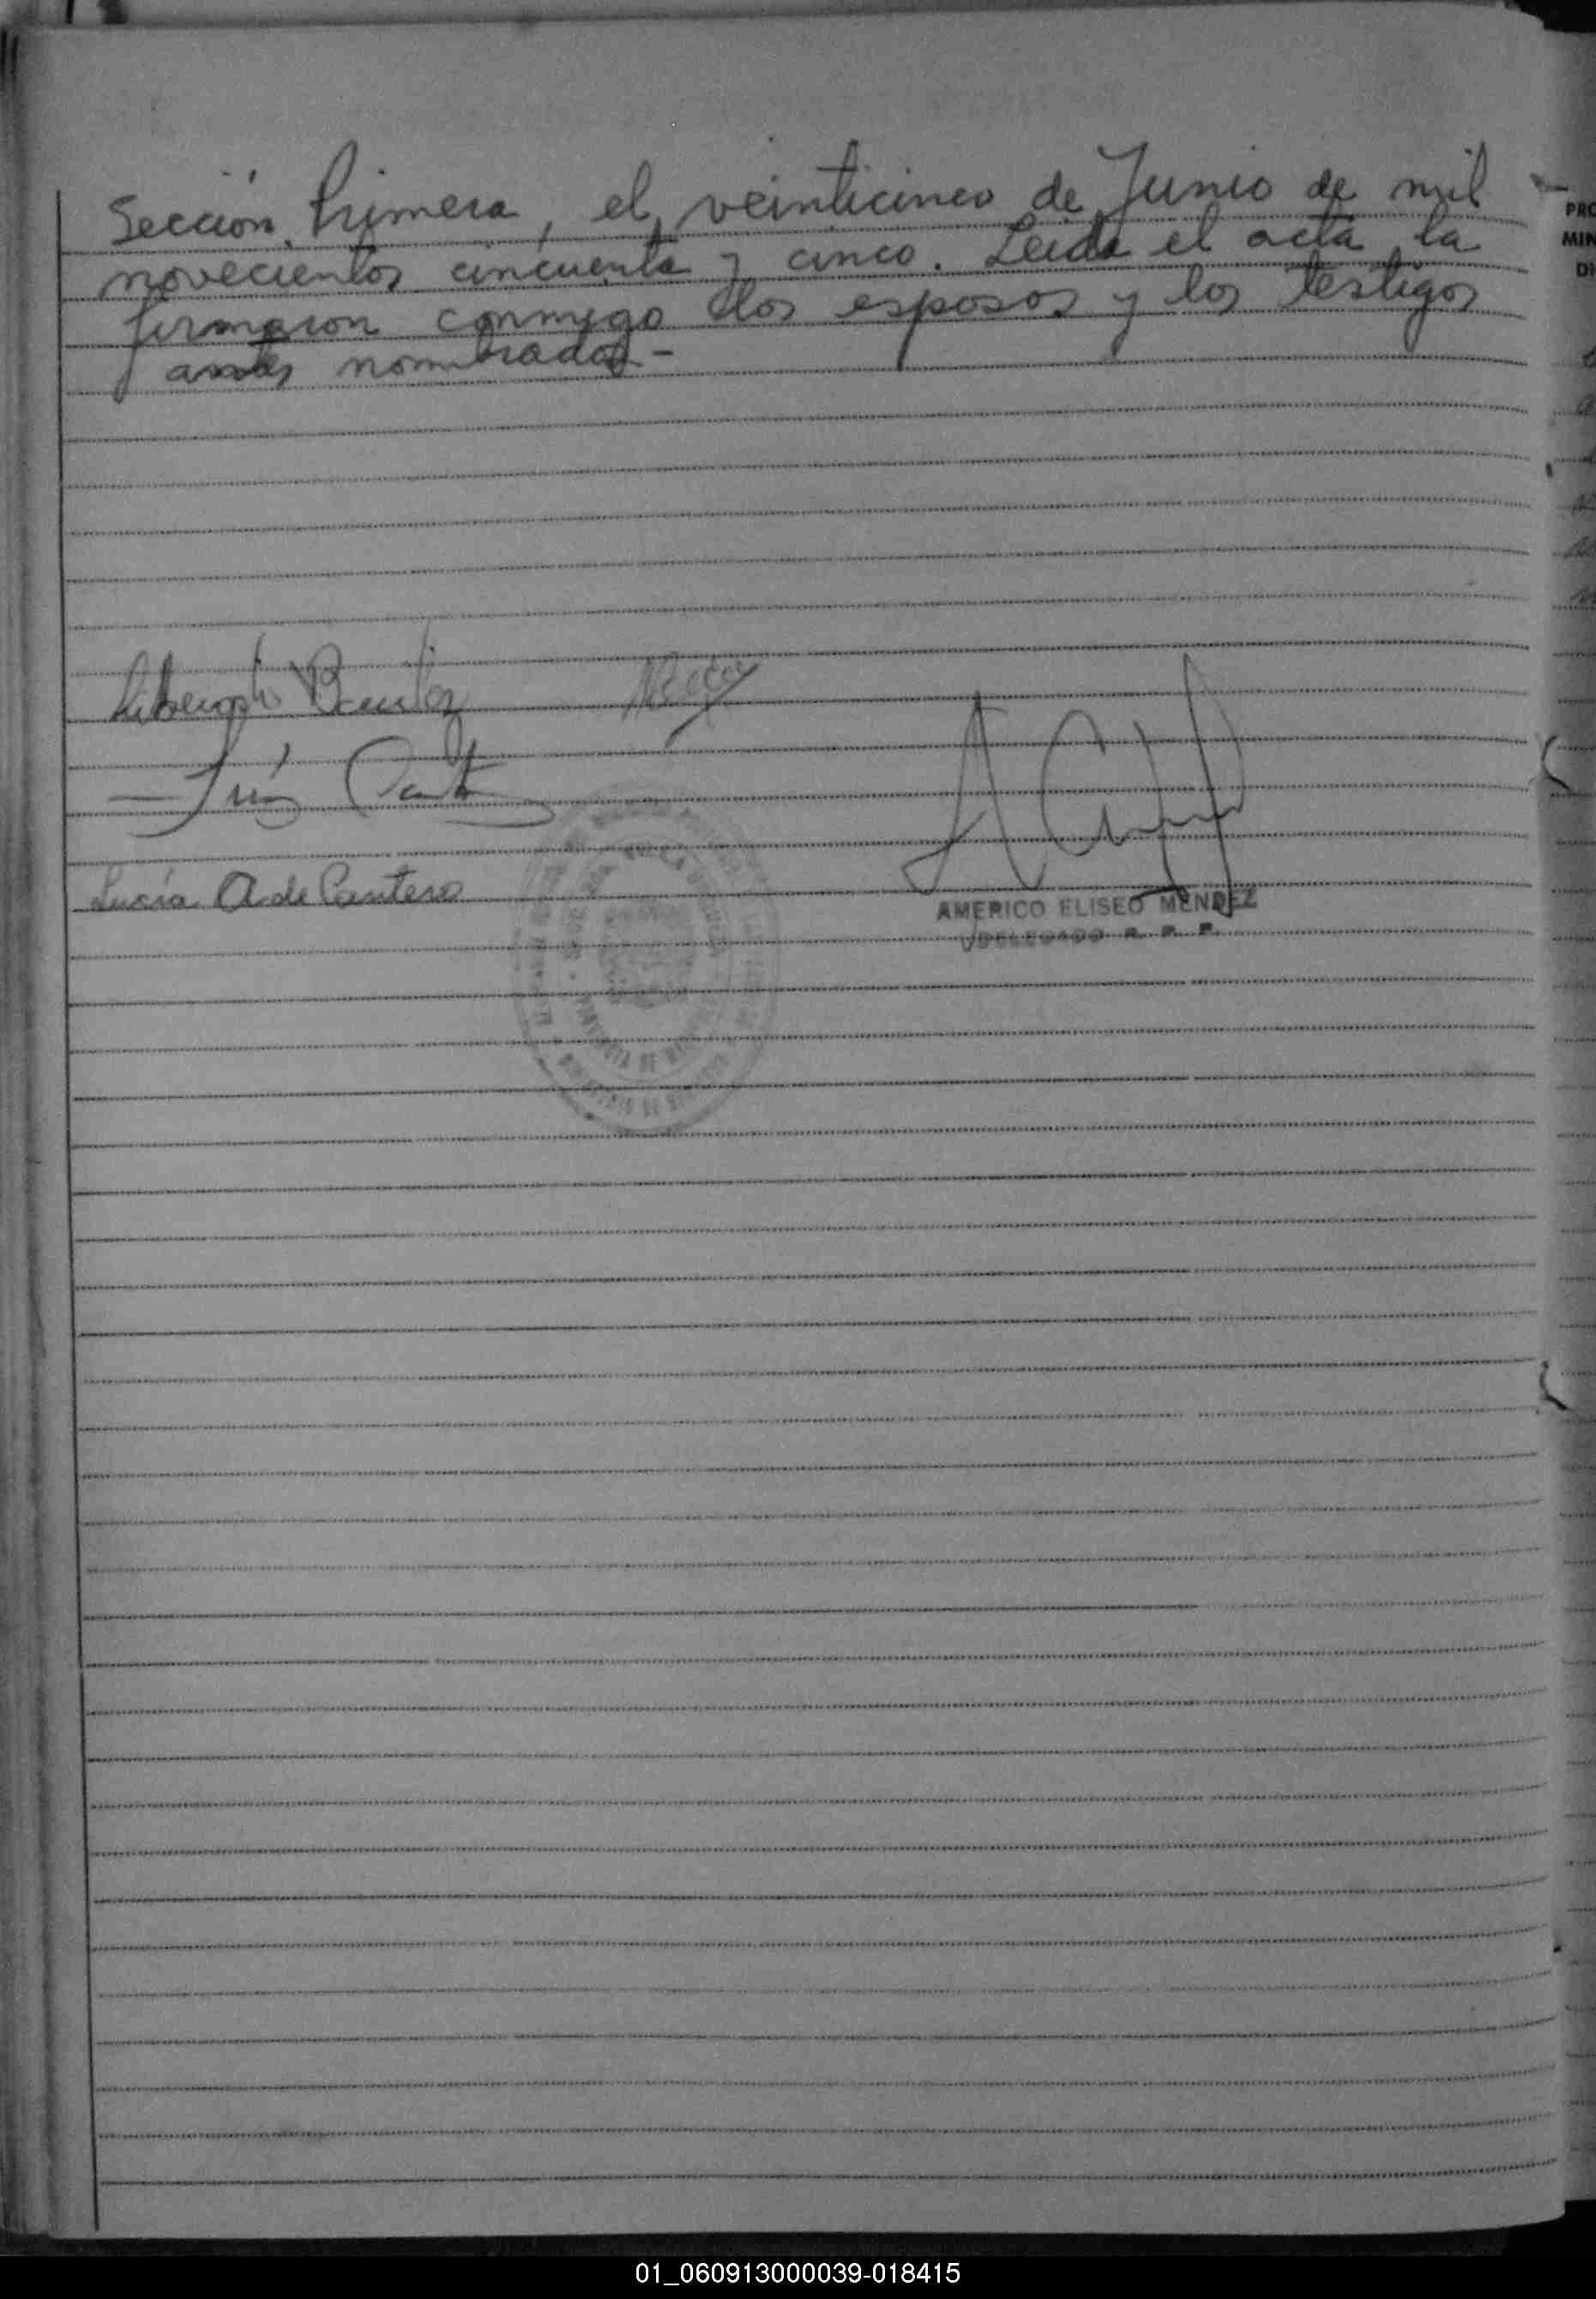 Sección Primera, el veinticinco de Junio de mil
novecientos cincuenta y cinco. Leida el acta, la
firmaron conmigo los esposos y los testigos
antes nombrados -
Lucía A de Cantero
AMERICO ELISEO MENDEZ
DELEGADO R. P. P.
PRO
MIN
DI
01_060913000039-018415